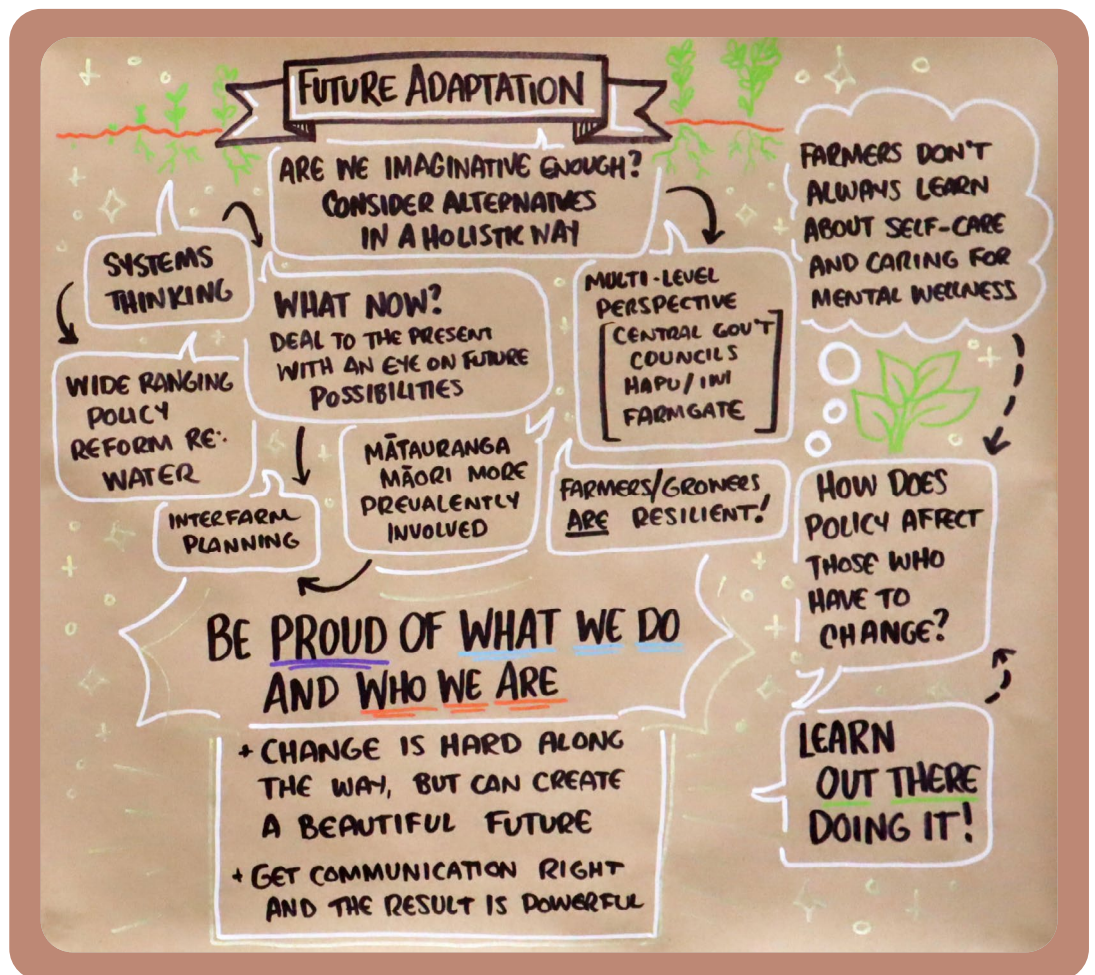 FUTURE ADAPTATION
ARE WE IMAGINATIVE ENOUGH?
CONSIDER ALTERNATIVES
IN A HOLISTIC WAY
SYSTEMS
THINKING
WIDE RANGING
POLICY
REFORM RE:
WATER
WHAT NOW?
DEAL TO THE PRESENT
WITH AN EYE ON FUTURE
POSSIBILITIES
INTERFARM
PLANNING
MĀTAURANGA
MĀORI MORE
PREVALENTLY
INVOLVED
MULTI-LEVEL
PERSPECTIVE
[CENTRAL GOV'T
COUNCILS
HAPU/IWI
FARMGATE]
FARMERS/GROWERS
ARE RESILIENT!
FARMERS DON'T
ALWAYS LEARN
ABOUT SELF-CARE
AND CARING FOR
MENTAL WELLNESS
HOW DOES
POLICY AFFECT
THOSE WHO
HAVE TO
CHANGE?
LEARN
OUT THERE
DOING IT!
BE PROUD OF WHAT WE DO
AND WHO WE ARE
+ CHANGE IS HARD ALONG
THE WAY, BUT CAN CREATE
A BEAUTIFUL FUTURE
+ GET COMMUNICATION RIGHT
AND THE RESULT IS POWERFUL